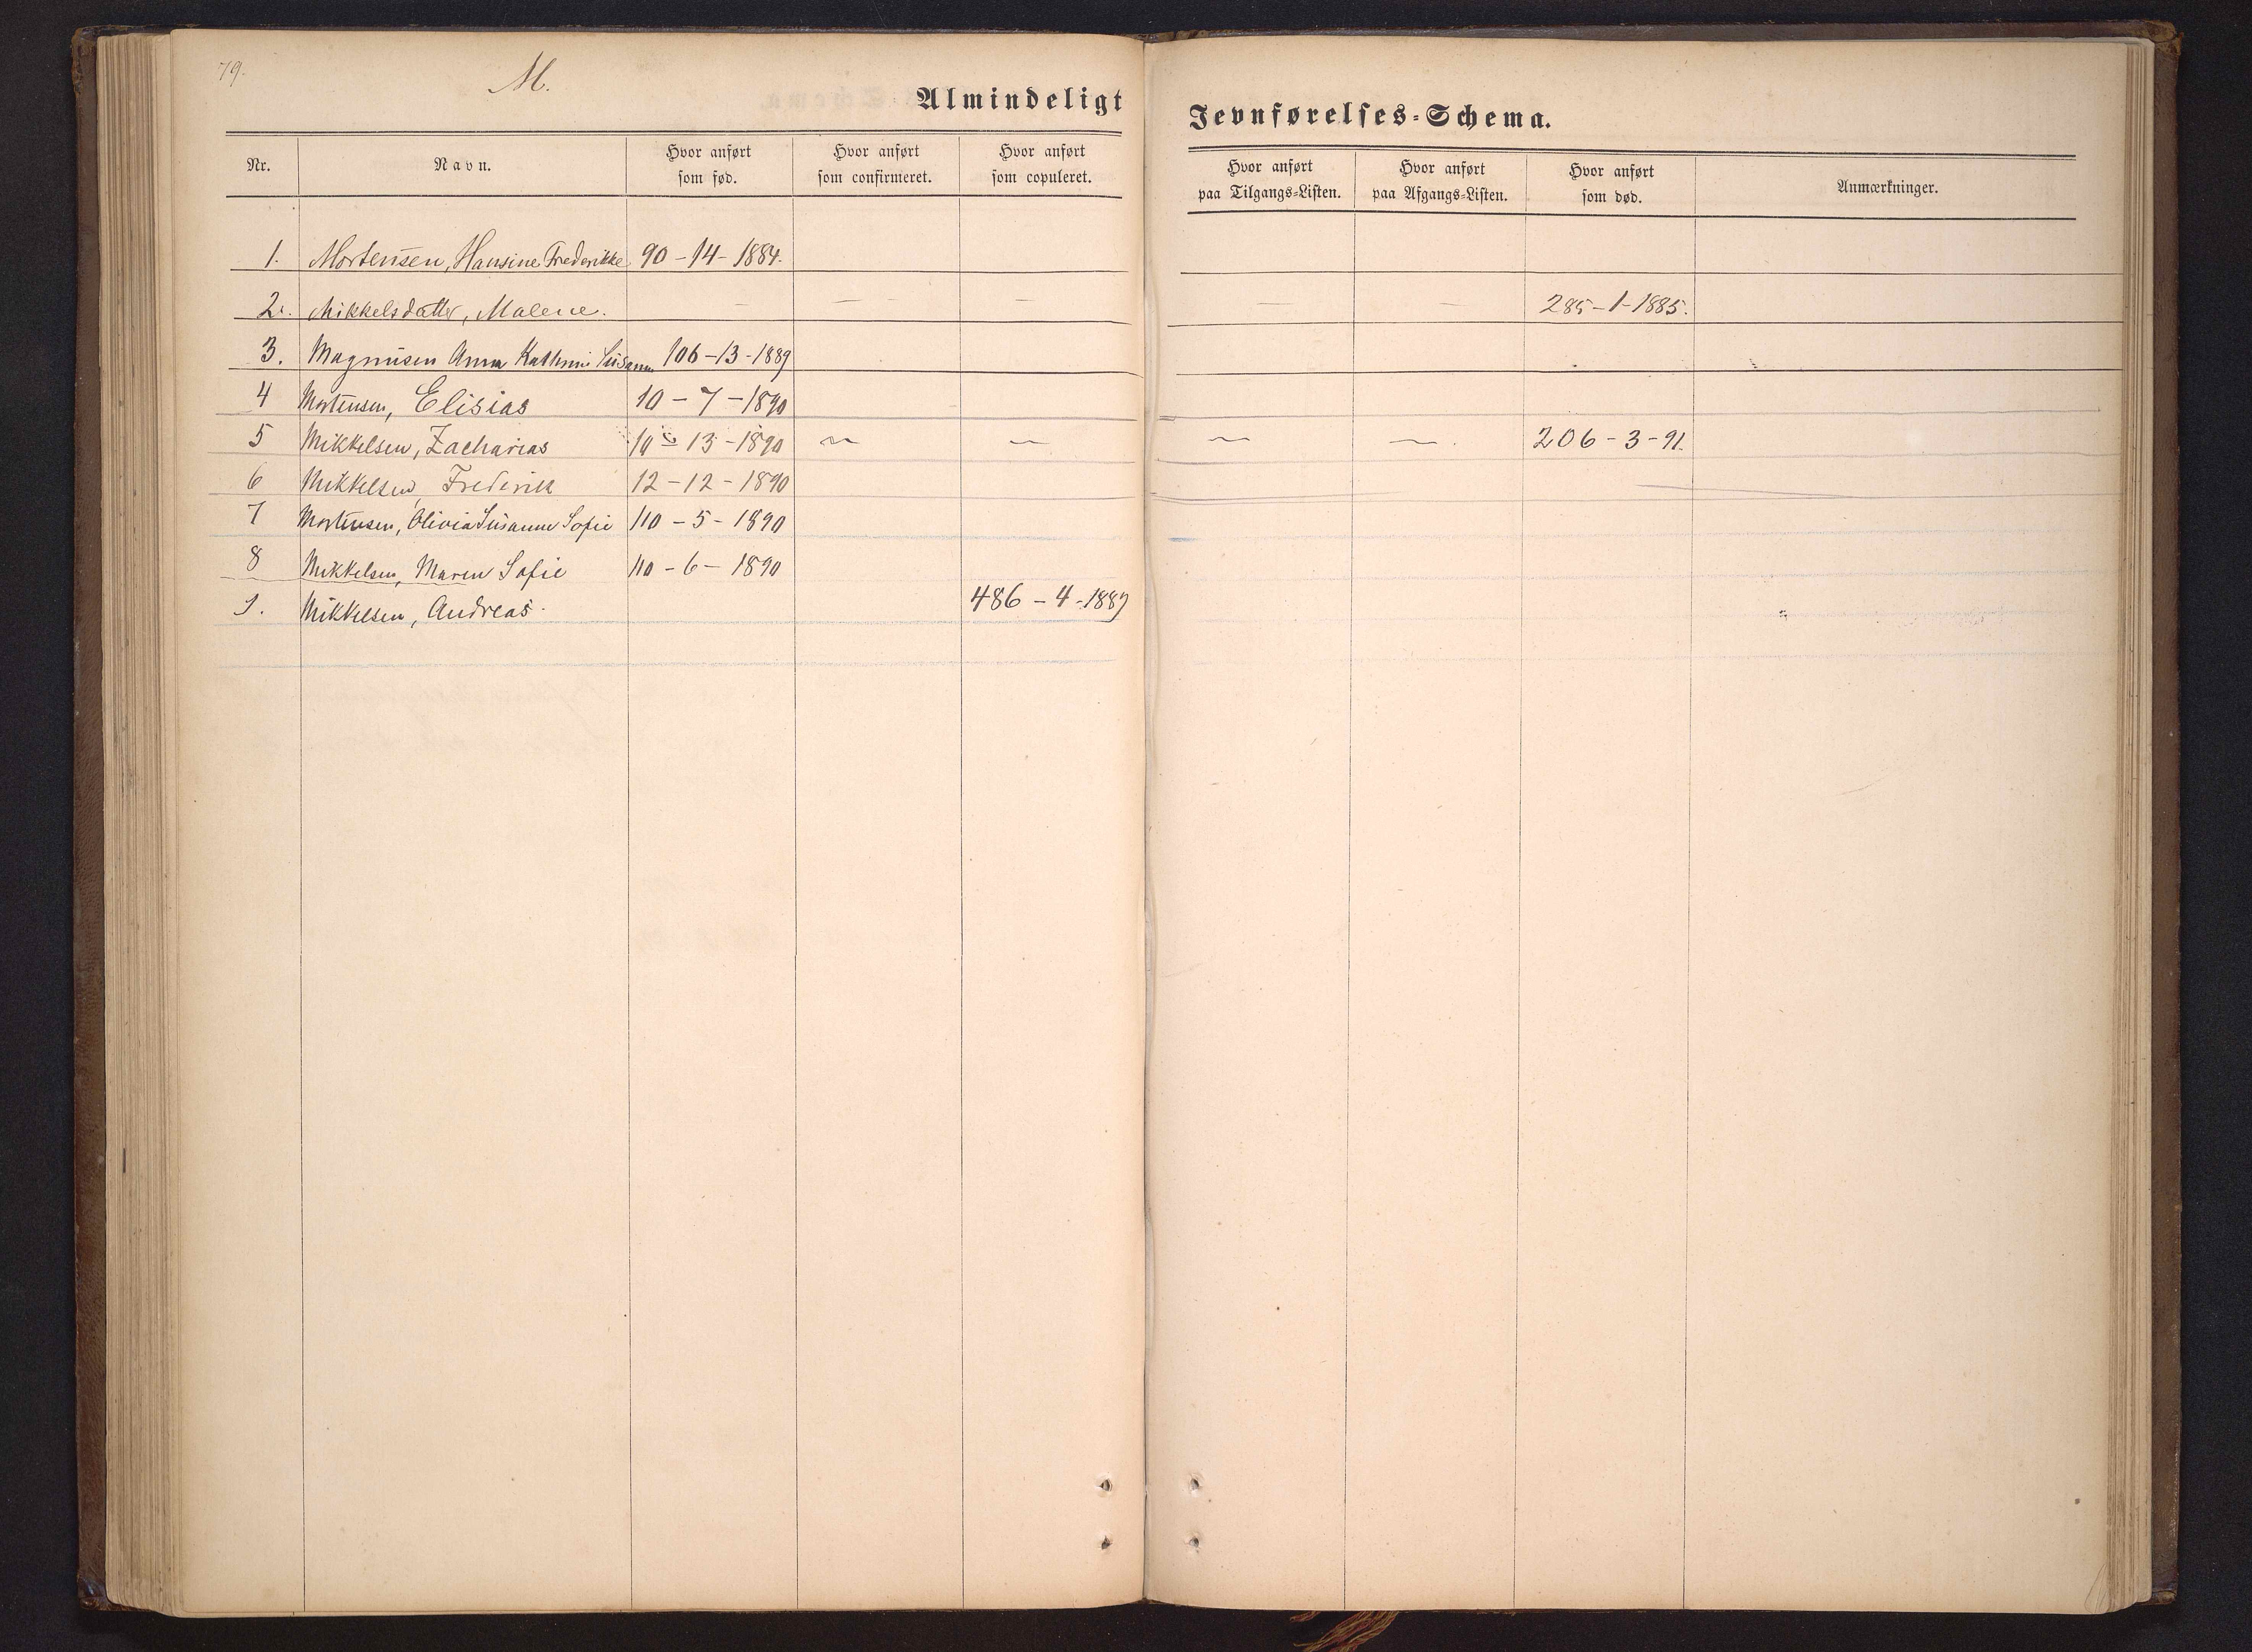 79.
M.
Almindeligt Jevnførelses-Schema.
Nr. Navn. Hvor anført som fød. Hvor anført som confirmeret. Hvor anført som copuleret. Hvor anført paa Tilgangs-Listen. Hvor anført paa Afgangs-Listen. Hvor anført som død. Anmærkninger.
1. Mortensen, Hansine Frederikke 90-14-1884.
2. Mikkelsdatter, Malene. — — — — — 285-1-1885.
3. Magnusen Anna Kathrine Susanne 106-13-1889
4 Mortensen, Elisias 10-7-1890
5 Mikkelsen, Zacharias 10-13-1890 — — — — 206-3-91.
6 Mikkelsen, Frederik 12-12-1890
7 Mortensen, Olivia Susanne Sofie 110-5-1890
8 Mikkelsen, Maren Sofie 110-6-1890
9. Mikkelsen, Andreas. 486-4-1889